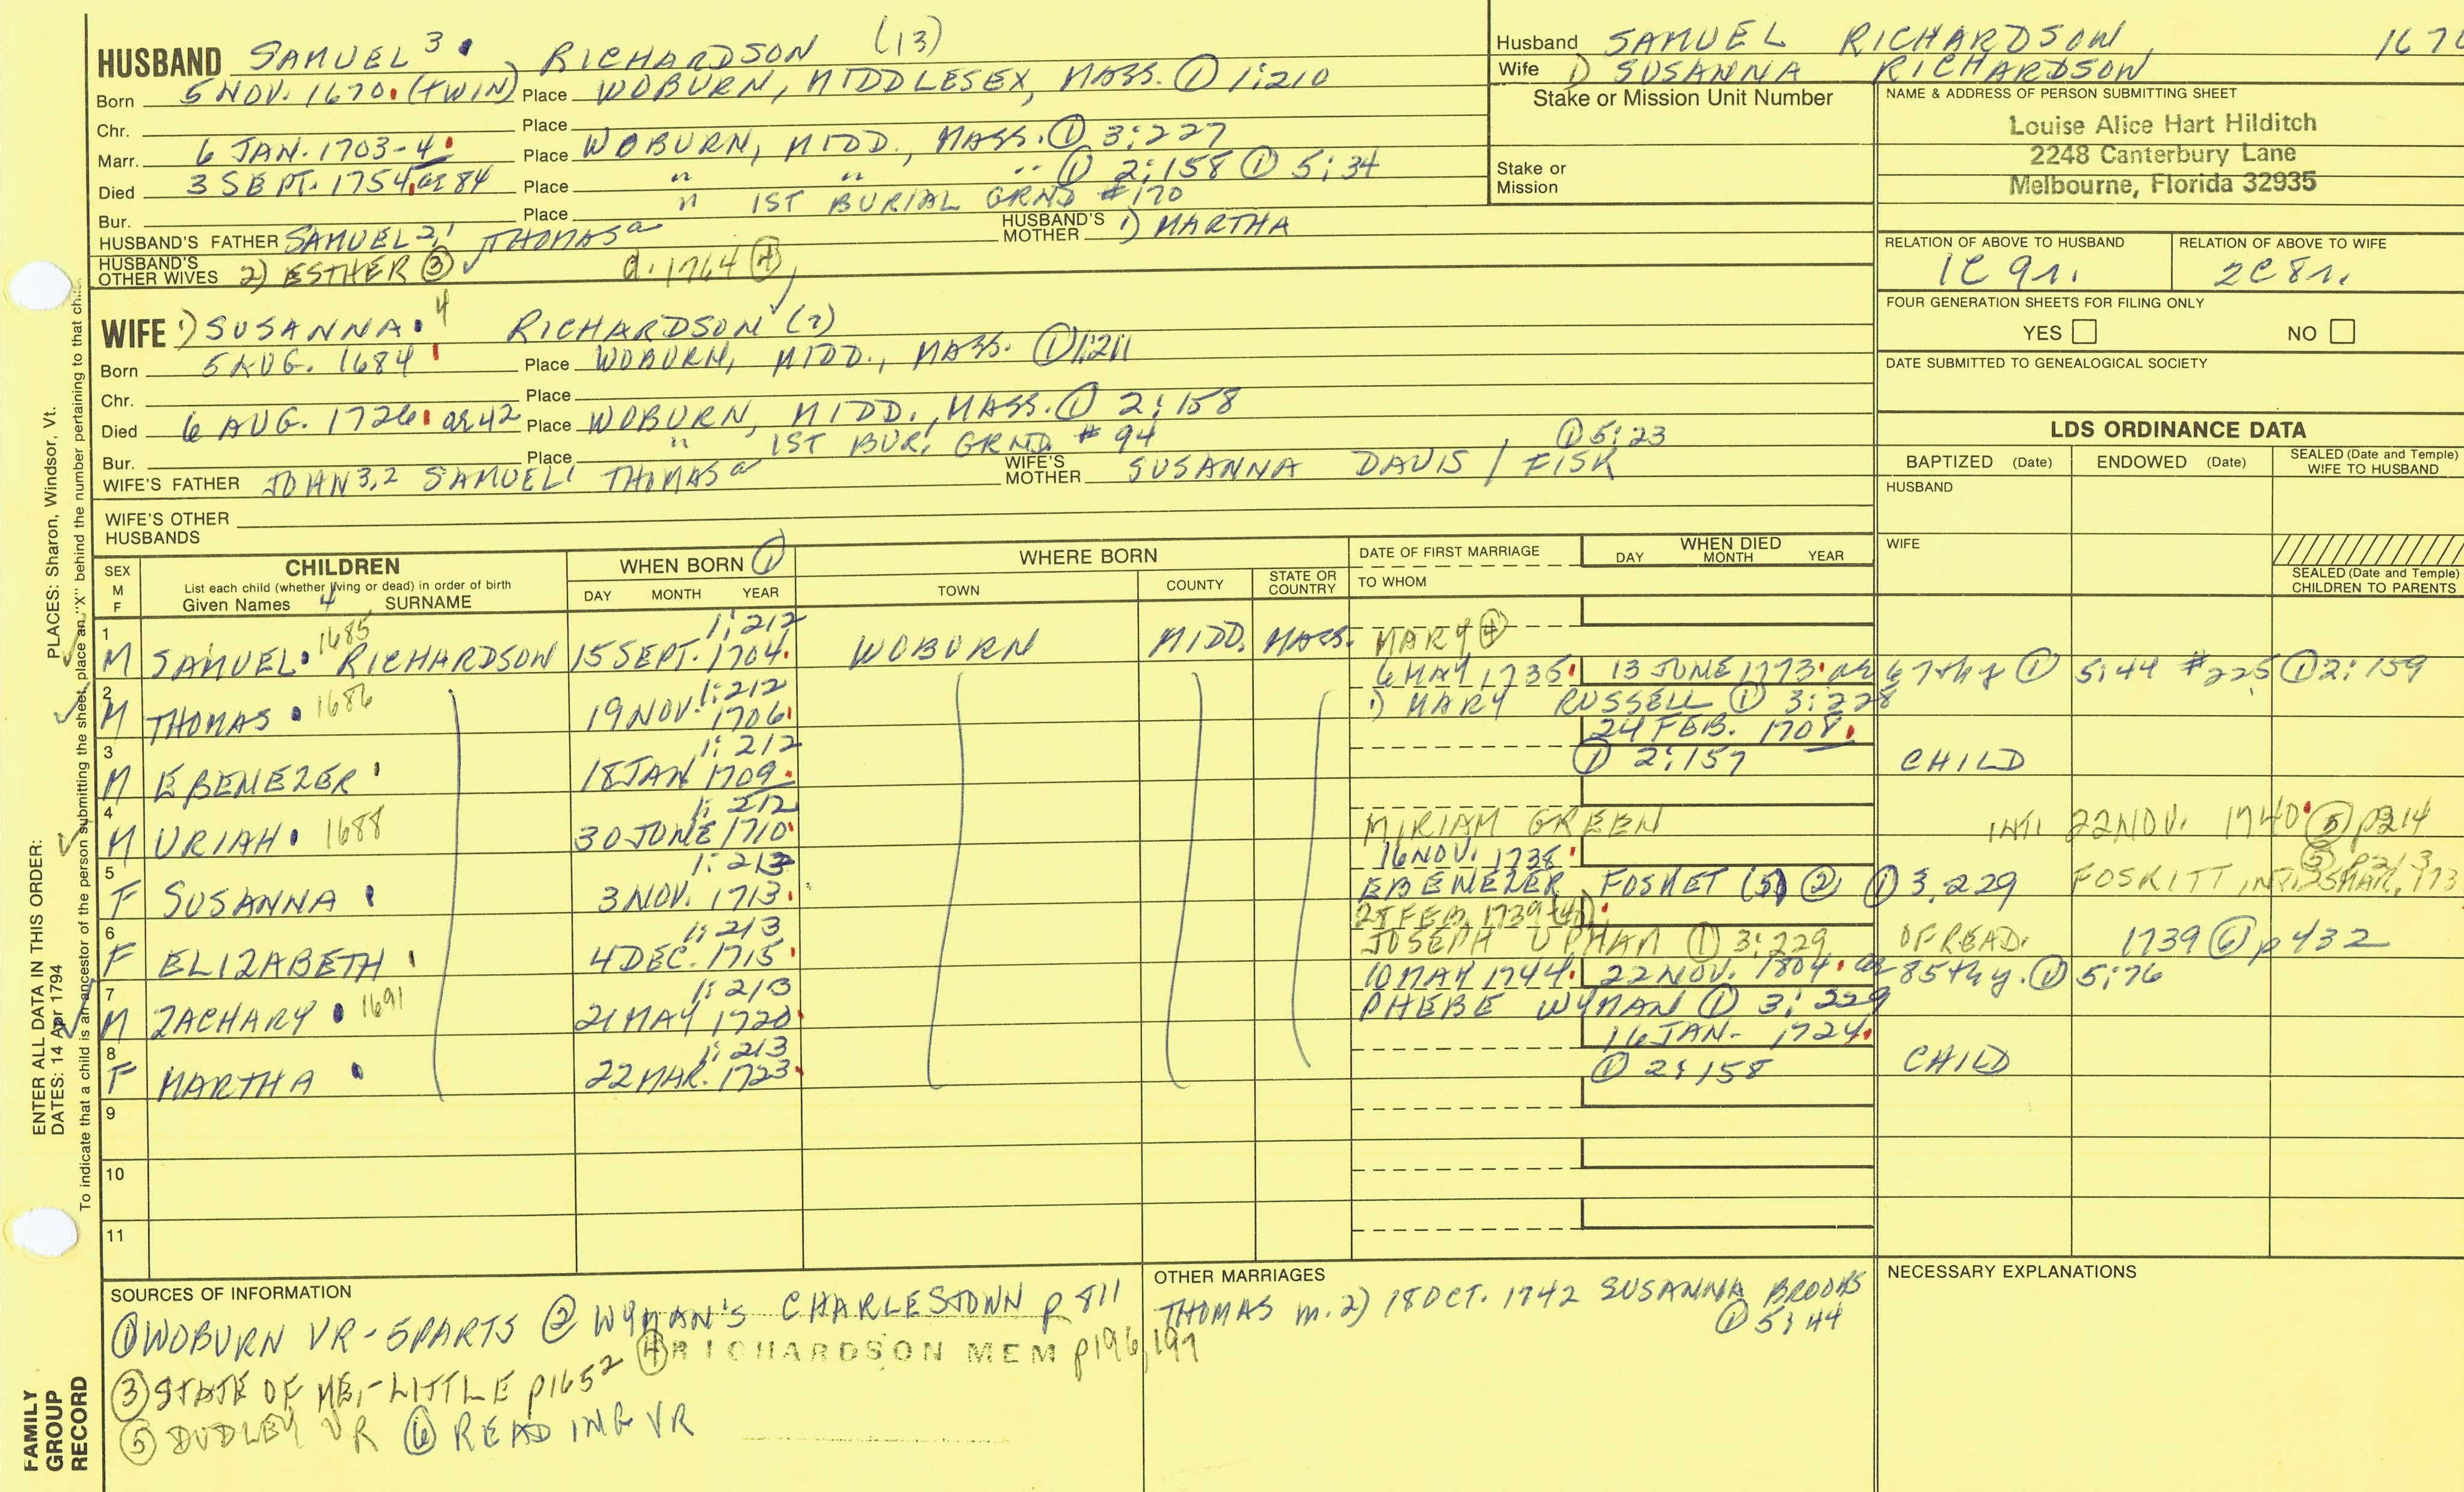 HUSBAND SAMUEL 3 RICHARDSON (13)
Born 5 NOV. 1670. (TWIN) Place WOBURN, MIDDLESEX, MASS. ① 1:210
Chr. Place
Marr. 6 JAN. 1703-4. Place WOBURN, MIDD., MASS. ① 3:227
Died 3 SEPT. 1754, ae 84 Place " " " ① 2:158 ① 5:34
Bur. Place " 1ST BURIAL GRND #170
HUSBAND'S FATHER SAMUEL 2,1 THOMAS a HUSBAND'S MOTHER 1) MARTHA
HUSBAND'S OTHER WIVES 2) ESTHER ③ d. 1764 ④
WIFE 1) SUSANNA. 4 RICHARDSON (2)
Born 5 AUG. 1684 Place WOBURN, MIDD., MASS. ① 1:211
Chr. Place
Died 6 AUG. 1726. ae 42 Place WOBURN, MIDD., MASS. ① 2:158
Bur. Place " 1ST BUR. GRND. # 94 ① 5:23
WIFE'S FATHER JOHN 3,2 SAMUEL 1 THOMAS a WIFE'S MOTHER SUSANNA DAVIS / FISK
WIFE'S OTHER HUSBANDS
Husband SAMUEL RICHARDSON, 167
Wife 1) SUSANNA RICHARDSON
Stake or Mission Unit Number
Stake or Mission
NAME & ADDRESS OF PERSON SUBMITTING SHEET
Louise Alice Hart Hilditch
2248 Canterbury Lane
Melbourne, Florida 32935
RELATION OF ABOVE TO HUSBAND RELATION OF ABOVE TO WIFE
1C 9r. 2C 8r.
FOUR GENERATION SHEETS FOR FILING ONLY
YES NO
DATE SUBMITTED TO GENEALOGICAL SOCIETY
LDS ORDINANCE DATA
BAPTIZED (Date) ENDOWED (Date) SEALED (Date and Temple) WIFE TO HUSBAND
HUSBAND
WIFE
SEALED (Date and Temple) CHILDREN TO PARENTS
SEX M F CHILDREN WHEN BORN ① WHERE BORN DATE OF FIRST MARRIAGE WHEN DIED
List each child (whether living or dead) in order of birth
Given Names 4 SURNAME DAY MONTH YEAR TOWN COUNTY STATE OR COUNTRY TO WHOM DAY MONTH YEAR
1 M SAMUEL. 1685 RICHARDSON 15 SEPT. 1704. 1:212 WOBURN MIDD. MASS. MARY ④
2 M THOMAS. 1686 19 NOV. 1706 1:212 6 MAY 1735. 13 JUNE 1773. ae 67th y ① 5:44 #225 ① 2:159
1) MARY RUSSELL ① 3:228
3 M EBENEZER 18 JAN 1709. 1:212 24 FEB. 1708. ① 2:157 CHILD
4 M URIAH. 1688 30 JUNE 1710. 1:212 MIRIAM GREEN INT. 22 NOV. 1740. ⑤ p214
5 F SUSANNA 3 NOV. 1713. 1:213 16 NOV. 1738. EBENEZER FOSKET (5) ② ① 3,229 FOSKITT, INT. ⑤ p213
6 F ELIZABETH 4 DEC. 1715 1:213 28 FEB. 1739-40. JOSEPH UPHAM ① 3:229 OF READ. 1739 ⑥ p432
7 M ZACHARY. 1691 21 MAY 1720 1:213 10 MAY 1744. 22 NOV. 1804. ae 85th y. ① 5:76
PHEBE WYMAN ① 3:229
8 F MARTHA 22 MAR. 1723. 1:213 16 JAN- 1724. ① 2:158 CHILD
9
10
11
SOURCES OF INFORMATION
① WOBURN VR - 5 PARTS ② WYMAN'S CHARLESTOWN p 811
④ RICHARDSON MEM p196, 197
③ STATE OF ME, - LITTLE p1652
⑤ DUDLEY VR ⑥ READING VR
OTHER MARRIAGES
THOMAS m. 2) 18 OCT. 1742 SUSANNA BROOKS
① 5:44
NECESSARY EXPLANATIONS
ENTER ALL DATA IN THIS ORDER:
DATES: 14 Apr 1794 PLACES: Sharon, Windsor, Vt.
To indicate that a child is an ancestor of the person submitting the sheet, place an "X" behind the number pertaining to that
FAMILY
GROUP
RECORD